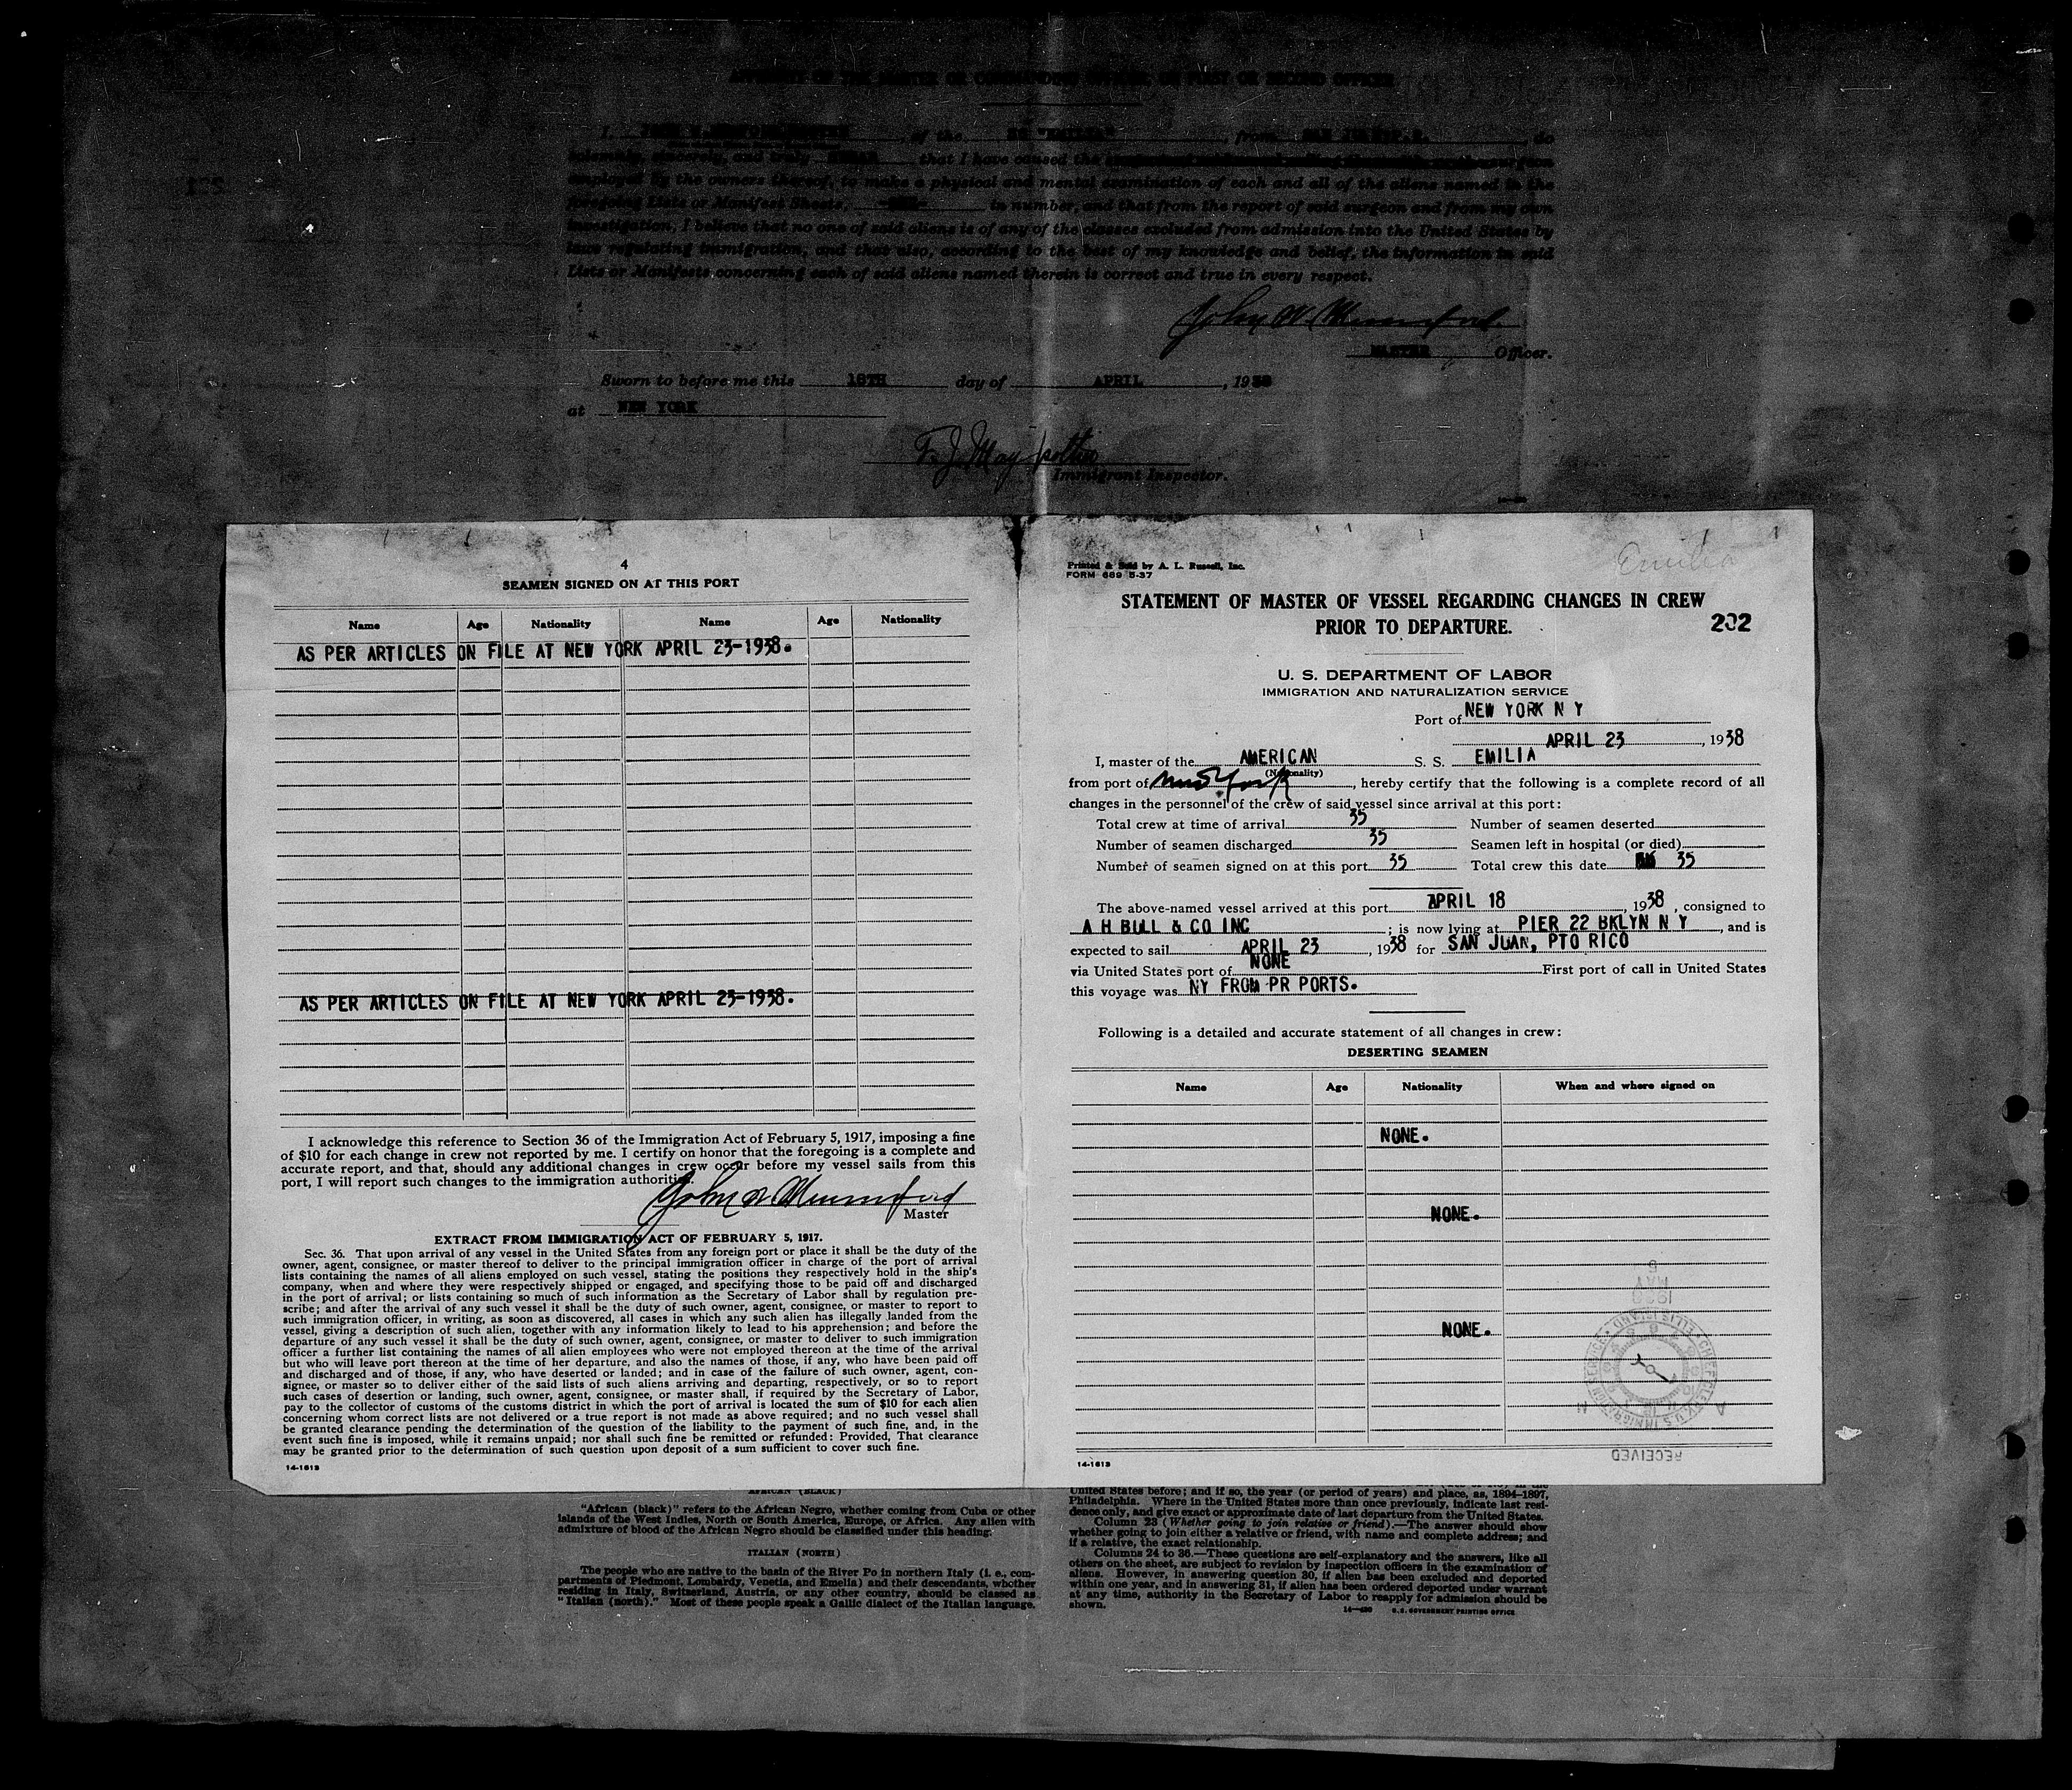 AFFIDAVIT OF THE MASTER OR COMMANDING OFFICER, OR FIRST OR SECOND OFFICER
I, of the SS "EMILIA", from SAN JUAN, P.R., do
solemnly, sincerely, and truly SWEAR that I have caused the
employed by the owners thereof, to make a physical and mental examination of each and all of the aliens named in the
foregoing Lists or Manifest Sheets, in number, and that from the report of said surgeon and from my own
investigation, I believe that no one of said aliens is of any of the classes excluded from admission into the United States by
laws regulating immigration, and that also, according to the best of my knowledge and belief, the information in said
Lists or Manifests concerning each of said aliens named therein is correct and true in every respect.
John W. Mumford
MASTER Officer.
Sworn to before me this 18TH day of APRIL, 1938
at NEW YORK
F. J. May
Immigrant Inspector.
4
SEAMEN SIGNED ON AT THIS PORT
Name Age Nationality Name Age Nationality
AS PER ARTICLES ON FILE AT NEW YORK APRIL 23-1938.
AS PER ARTICLES ON FILE AT NEW YORK APRIL 23-1938.
I acknowledge this reference to Section 36 of the Immigration Act of February 5, 1917, imposing a fine
of $10 for each change in crew not reported by me. I certify on honor that the foregoing is a complete and
accurate report, and that, should any additional changes in crew occur before my vessel sails from this
port, I will report such changes to the immigration authorities.
John W. Mumford
Master
EXTRACT FROM IMMIGRATION ACT OF FEBRUARY 5, 1917.
Sec. 36. That upon arrival of any vessel in the United States from any foreign port or place it shall be the duty of the
owner, agent, consignee, or master thereof to deliver to the principal immigration officer in charge of the port of arrival
lists containing the names of all aliens employed on such vessel, stating the positions they respectively hold in the ship's
company, when and where they were respectively shipped or engaged, and specifying those to be paid off and discharged
in the port of arrival; or lists containing so much of such information as the Secretary of Labor shall by regulation pre-
scribe; and after the arrival of any such vessel it shall be the duty of such owner, agent, consignee, or master to report to
such immigration officer, in writing, as soon as discovered, all cases in which any such alien has illegally landed from the
vessel, giving a description of such alien, together with any information likely to lead to his apprehension; and before the
departure of any such vessel it shall be the duty of such owner, agent, consignee, or master to deliver to such immigration
officer a further list containing the names of all alien employees who were not employed thereon at the time of the arrival
but who will leave port thereon at the time of her departure, and also the names of those, if any, who have been paid off
and discharged and of those, if any, who have deserted or landed; and in case of the failure of such owner, agent, con-
signee, or master so to deliver either of the said lists of such aliens arriving and departing, respectively, or so to report
such cases of desertion or landing, such owner, agent, consignee, or master shall, if required by the Secretary of Labor,
pay to the collector of customs of the customs district in which the port of arrival is located the sum of $10 for each alien
concerning whom correct lists are not delivered or a true report is not made as above required; and no such vessel shall
be granted clearance pending the determination of the question of the liability to the payment of such fine, and, in the
event such fine is imposed, while it remains unpaid; nor shall such fine be remitted or refunded: Provided, That clearance
may be granted prior to the determination of such question upon deposit of a sum sufficient to cover such fine.
14-1613
Emilia
Printed & Sold by A. L. Russell, Inc.
FORM 689 5-37
STATEMENT OF MASTER OF VESSEL REGARDING CHANGES IN CREW
PRIOR TO DEPARTURE.
202
U. S. DEPARTMENT OF LABOR
IMMIGRATION AND NATURALIZATION SERVICE
Port of NEW YORK N Y
APRIL 23, 1938
I, master of the AMERICAN S. S. EMILIA
(Nationality)
from port of New York, hereby certify that the following is a complete record of all
changes in the personnel of the crew of said vessel since arrival at this port:
Total crew at time of arrival 35 Number of seamen deserted
Number of seamen discharged 35 Seamen left in hospital (or died)
Number of seamen signed on at this port 35 Total crew this date 35
The above-named vessel arrived at this port APRIL 18, 1938, consigned to
A H BULL & CO INC; is now lying at PIER 22 BKLYN N Y, and is
expected to sail APRIL 23, 1938 for SAN JUAN, PTO RICO
via United States port of NONE First port of call in United States
this voyage was NY FROM PR PORTS.
Following is a detailed and accurate statement of all changes in crew:
DESERTING SEAMEN
Name Age Nationality When and where signed on
NONE.
NONE.
NONE.
RECEIVED
U.S. IMMIGRATION SERVICE
ELLIS ISLAND
MAY
14-1613
AFRICAN (BLACK)
"African (black)" refers to the African Negro, whether coming from Cuba or other
islands of the West Indies, North or South America, Europe, or Africa. Any alien with
admixture of blood of the African Negro should be classified under this heading.
ITALIAN (NORTH)
The people who are native to the basin of the River Po in northern Italy (i. e., com-
partments of Piedmont, Lombardy, Venetia, and Emelia) and their descendants, whether
residing in Italy, Switzerland, Austria, or any other country, should be classed as
"Italian (north)." Most of these people speak a Gallic dialect of the Italian language.
United States before; and if so, the year (or period of years) and place, as, 1894-1897,
Philadelphia. Where in the United States more than once previously, indicate last resi-
dence only, and give exact or approximate date of last departure from the United States.
Column 23 (Whether going to join relative or friend).—The answer should show
whether going to join either a relative or friend, with name and complete address; and
if a relative, the exact relationship.
Columns 24 to 36.—These questions are self-explanatory and the answers, like all
others on the sheet, are subject to revision by inspection officers in the examination of
aliens. However, in answering question 30, if alien has been excluded and deported
within one year, and in answering 31, if alien has been ordered deported under warrant
at any time, authority in the Secretary of Labor to reapply for admission should be
shown.
U.S. GOVERNMENT PRINTING OFFICE